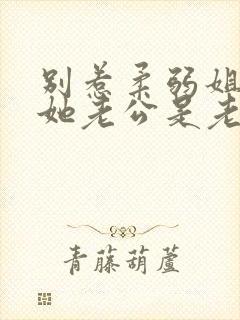 别惹柔弱姐
她老公是老
青藤葫蘆